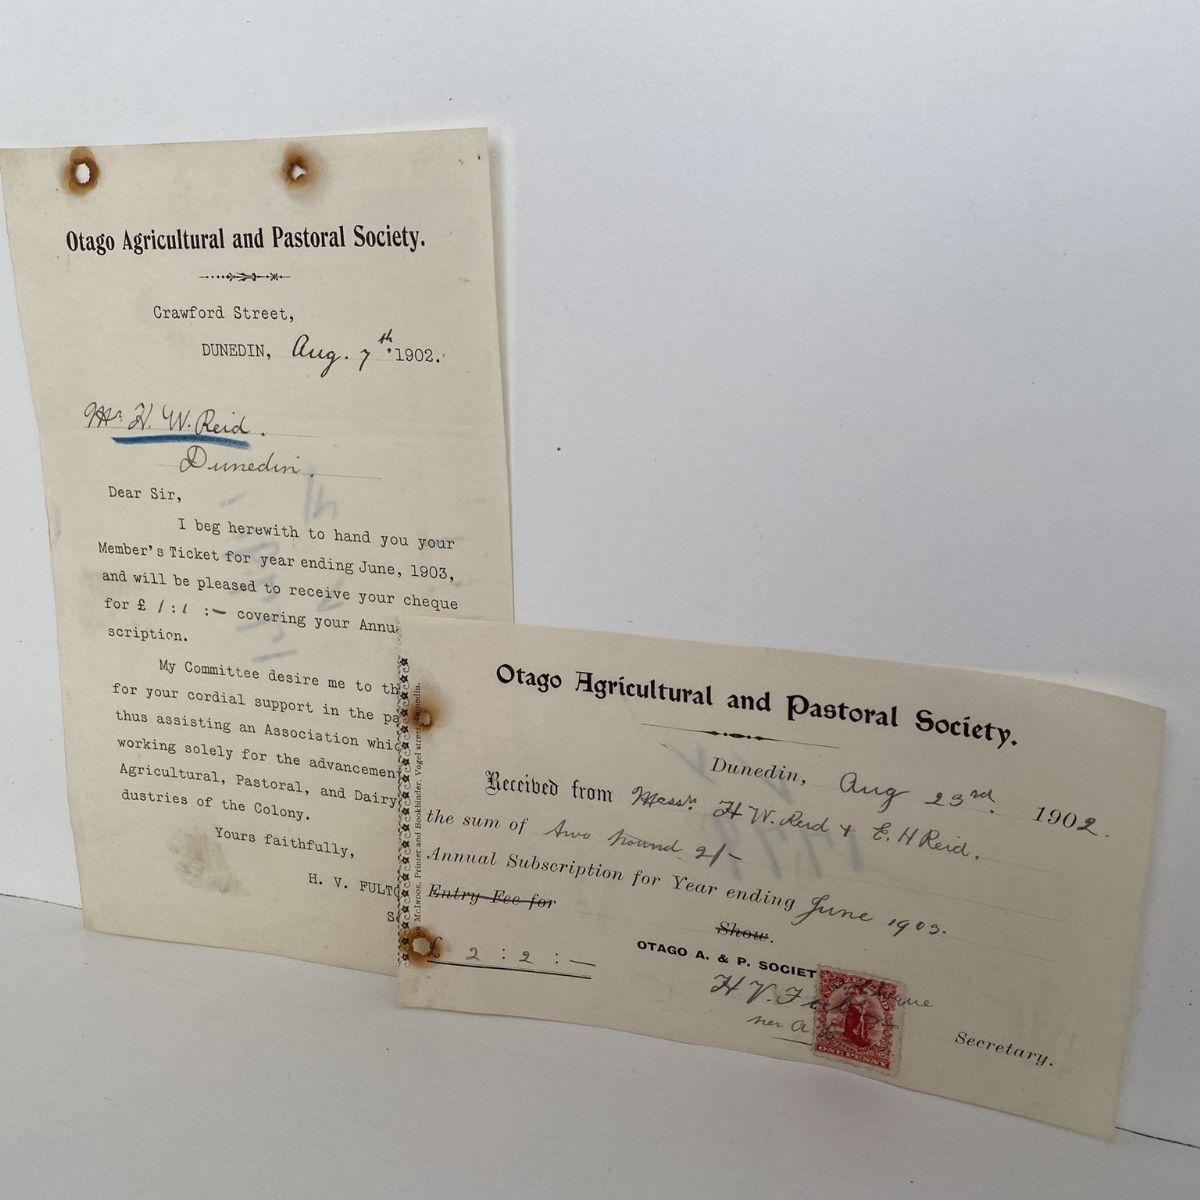 Otago Agricultural and Pastoral Society.
Crawford Street,
DUNEDIN, Aug. 7th 1902.
Mr. H. W. Reid.
Dunedin.
Dear Sir,
I beg herewith to hand you your
Member's Ticket for year ending June, 1903,
and will be pleased to receive your cheque
for £ 1:1:- covering your Annu
scription.
My Committee desire me to th
for your cordial support in the pa
thus assisting an Association whic
working solely for the advancemen
Agricultural, Pastoral, and Dairy
dustries of the Colony.
Yours faithfully,
H. V. FULTO
S
McIndoe, Printer and Bookbinder, Vogel street, Dunedin.
Otago Agricultural and Pastoral Society.
Dunedin, Aug 23rd. 1902.
Received from Messrs H W. Reid & E. H Reid.
the sum of two pound 2/-
Annual Subscription for Year ending June 1903.
Entry Fee for
Show.
£ 2 : 2 : —
OTAGO A. & P. SOCIET
H V. Fulton
per A
Secretary.
ONE PENNY